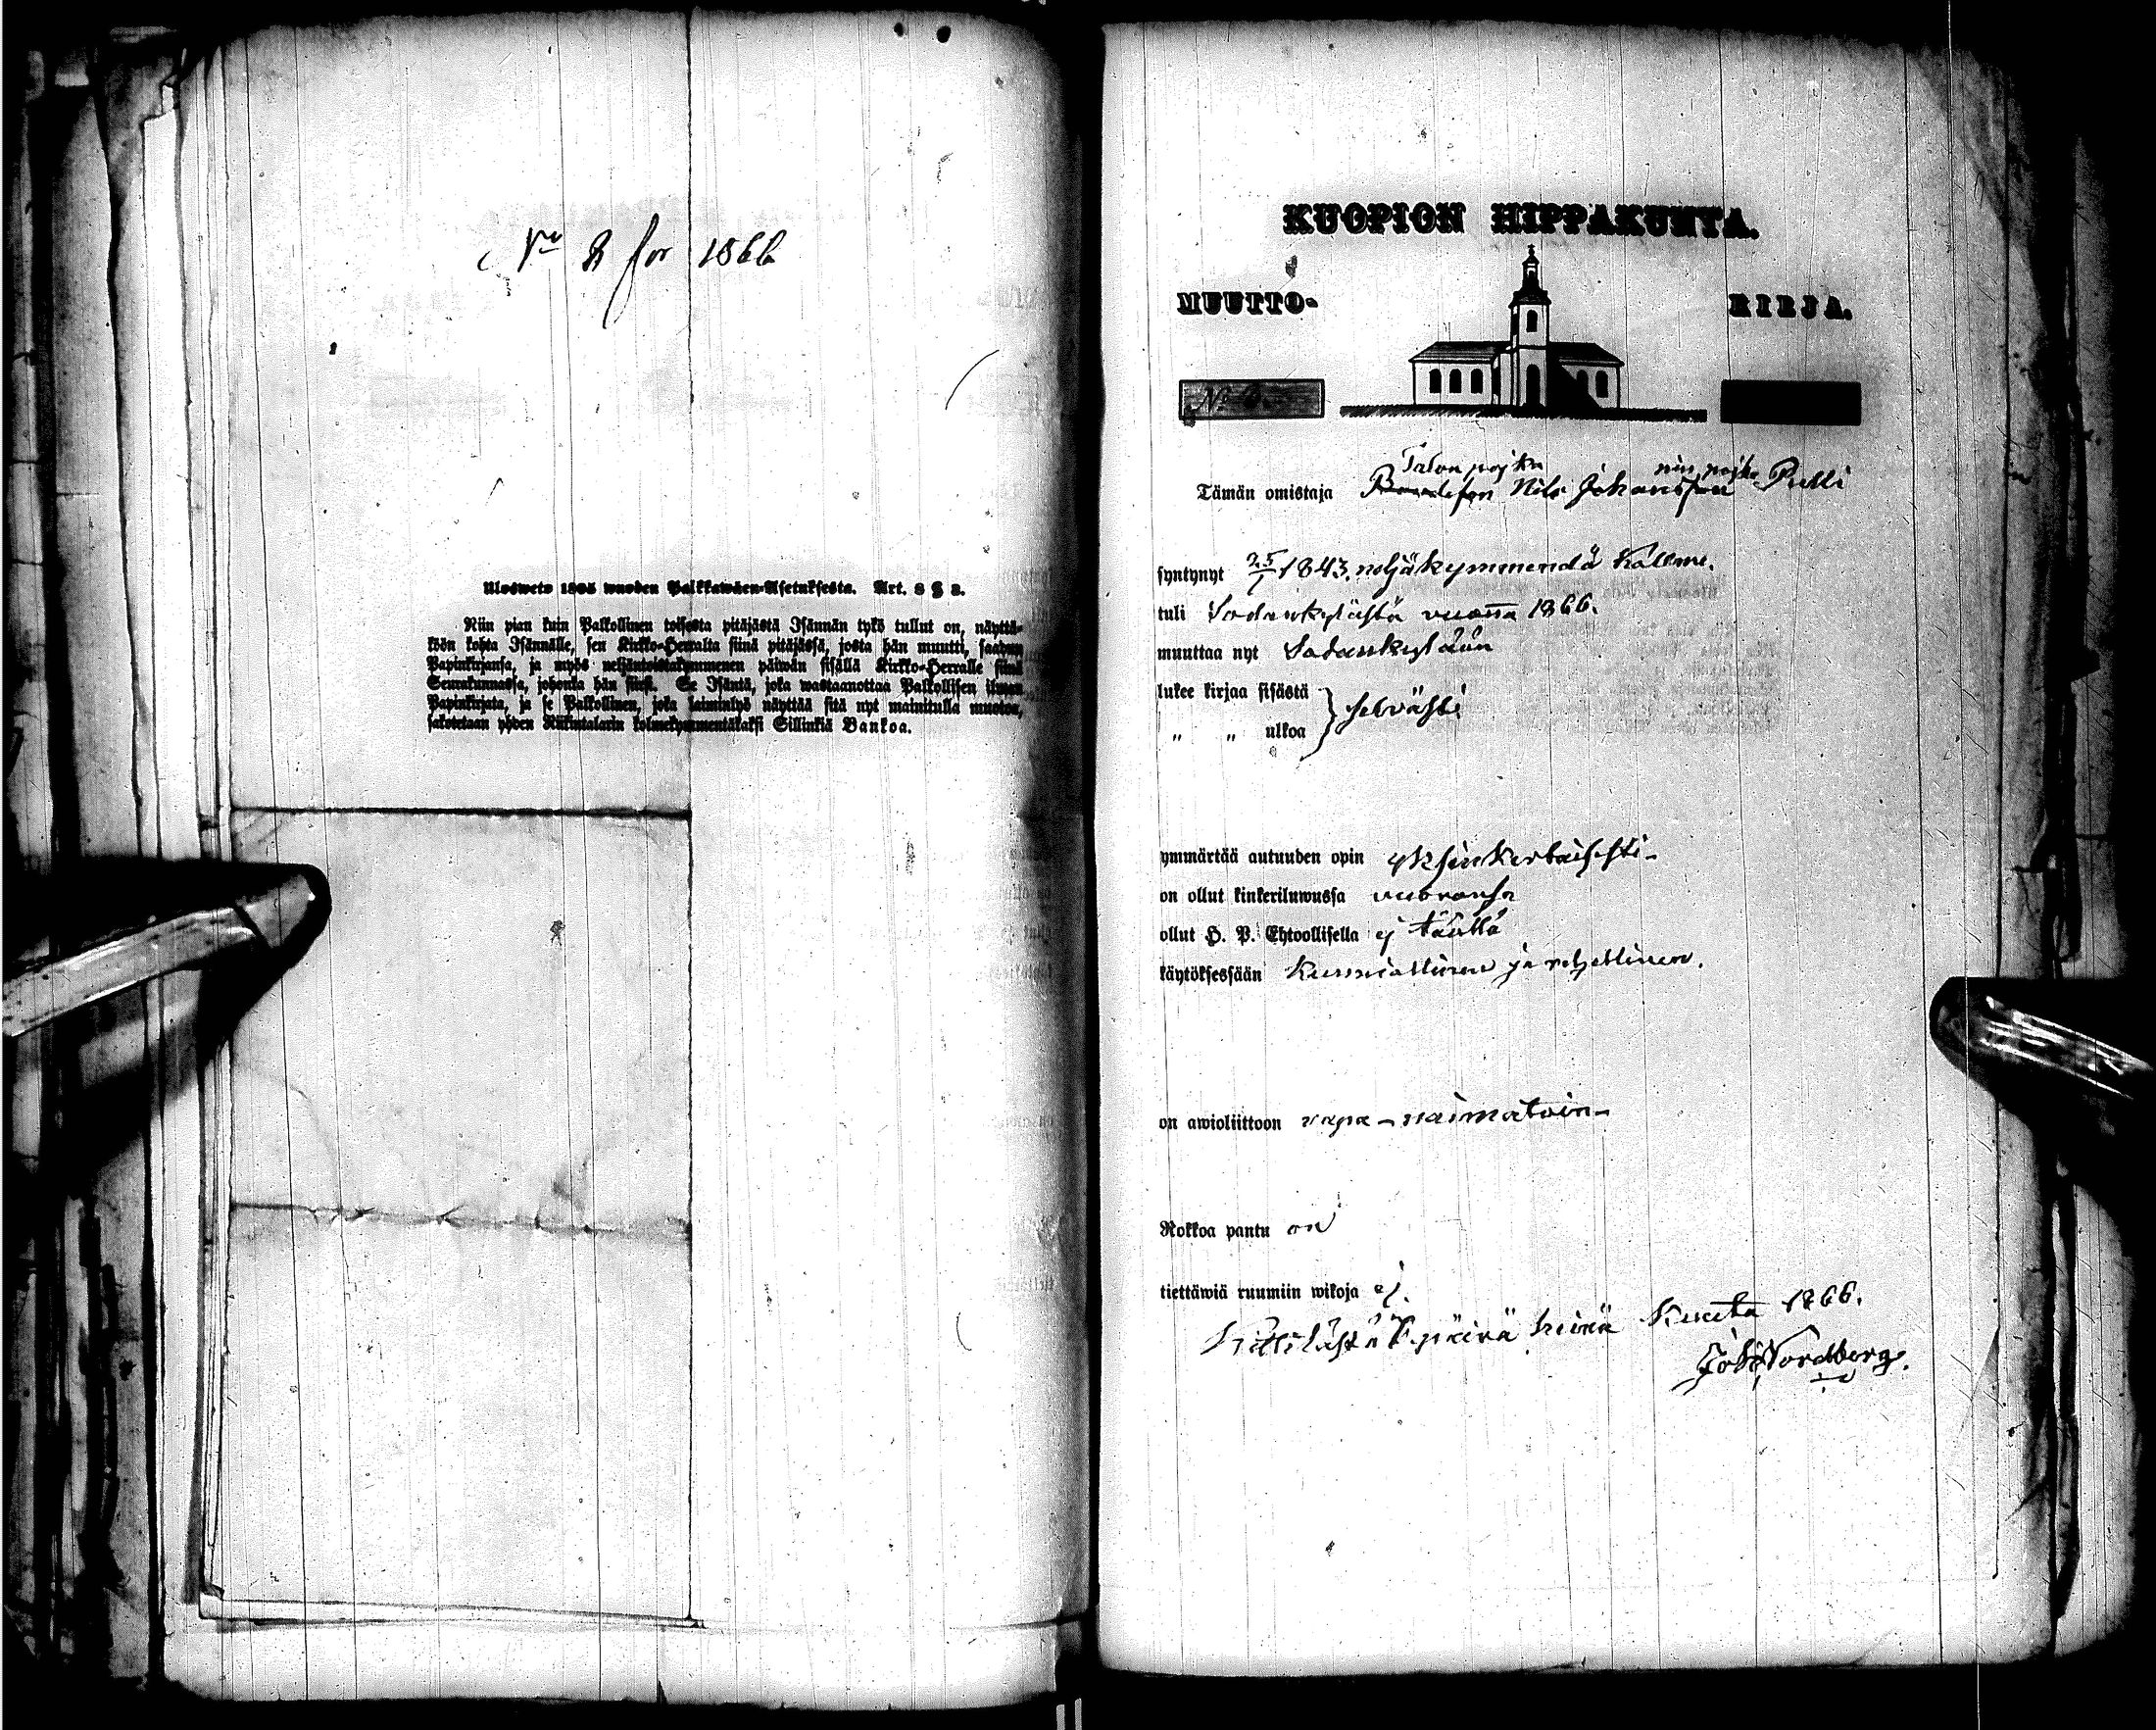 No 8 för 1866
Uloswето 1805 wuoden Palkkawäen-Asetuksesta. Art. 8 § 8.
Niin pian kuin Palkollinen toisesta pitäjästä Isännän tykö tullut on, näyttä-
köön kohta Isännälle, sen Kirkko-Herralta siinä pitäjässä, josta hän muutti, saadun
Papinkirjansa, ja myös neljäntoistakymmenen päiwän sisällä Kirkko-Herralle siinä
Seurakunnassa, johonka hän siirsi. Se Isäntä, joka wastaanottaa Palkollisen ilman
Papinkirjata, ja se Palkollinen, joka laiminlyö näyttää sitä nyt mainitulla muotoa,
sakotetaan yhden Riikintalarin kolmekymmentäkaksi Sillinkiä Bankoa.
KUOPION HIPPAKUNTA.
MUUTTO- KIRJA.
No
Talon pojka pojka
Tämän omistaja Bondeson Nils Johansson Pulli
syntynyt 25/1 1843. neljäkymmendä kolme.
tuli Sodankylästä vuonna 1866.
muuttaa nyt Sodankylään
lukee kirjaa sisästä
„ „ ulkoa } selvästi
ymmärtää autuuden opin yksinkertaisesti-
on ollut kinkeriluwussa vuoronsa
ollut H. P. Ehtoollisella ej täällä
käytöksessään kunniallinen ja rehellinen.
on awioliittoon vapa - naimatoin-
Rokkoa pantu on
tiettäwiä ruumiin wikoja ej.
Kittilästä päivä heinä Kuuta 1866.
Joh. Nordberg.